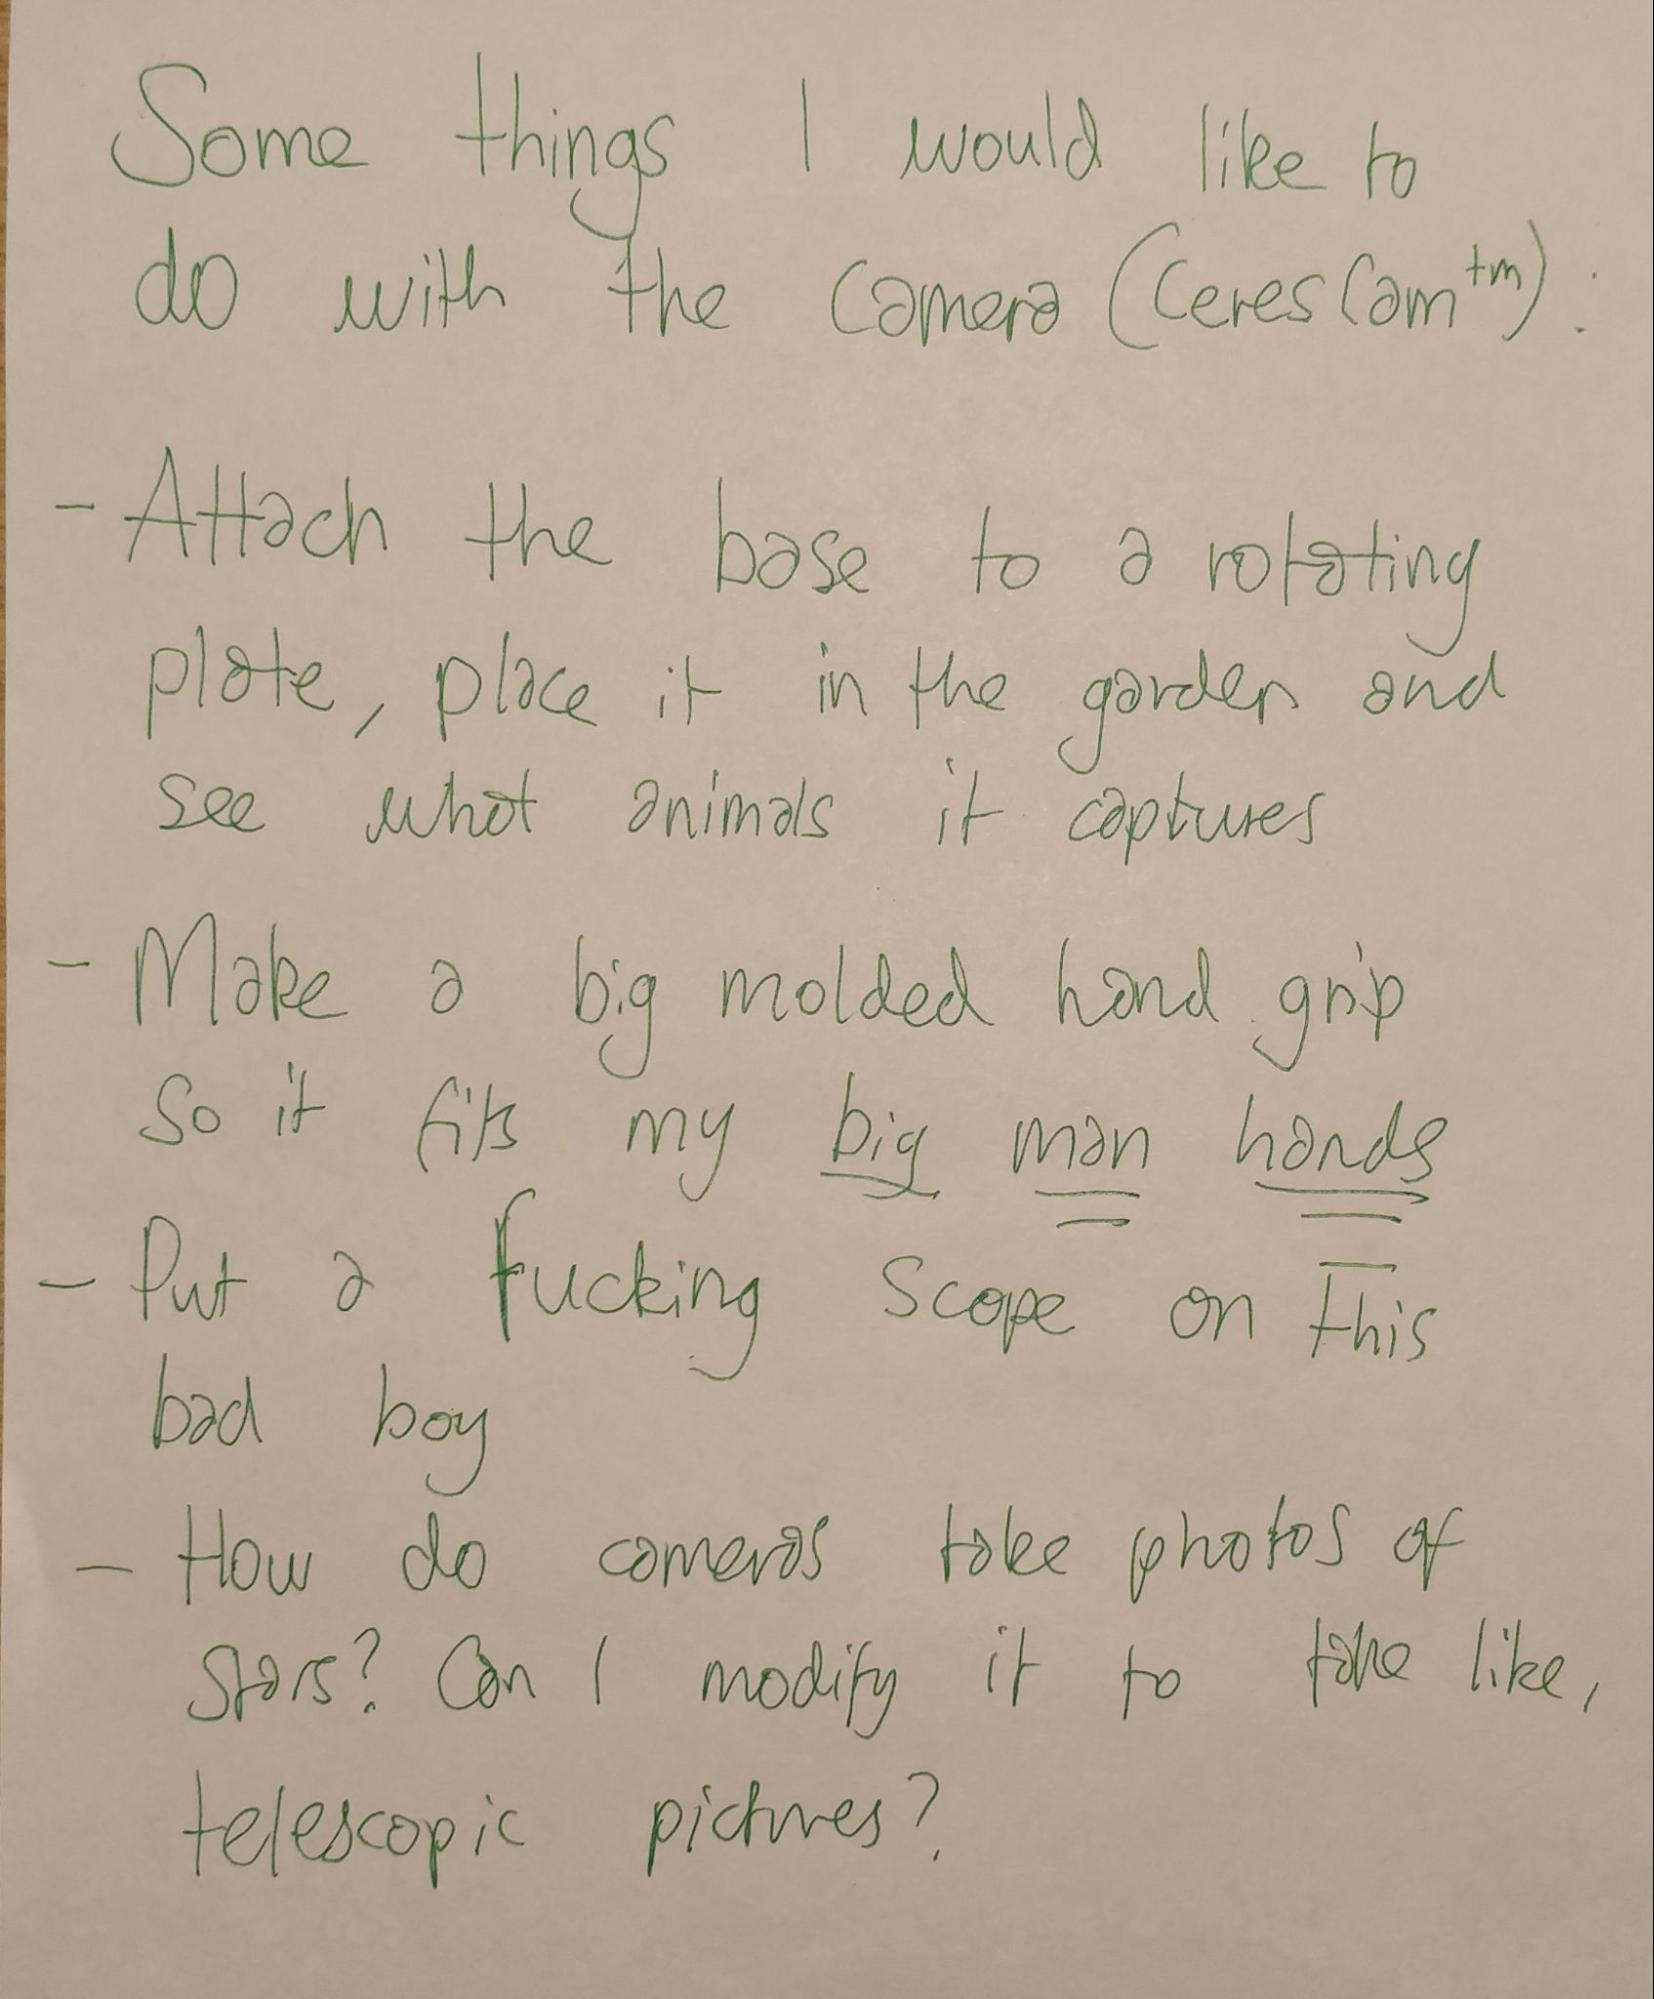 Some things I would like to
do with the camera (CeresCam™):
- Attach the base to a rotating
plate, place it in the garden and
see what animals it captures
- Make a big molded hand grip
so it fits my big man hands
- Put a fucking scope on this
bad boy
- How do cameras take photos of
stars? Can I modify it to take like,
telescopic pictures?